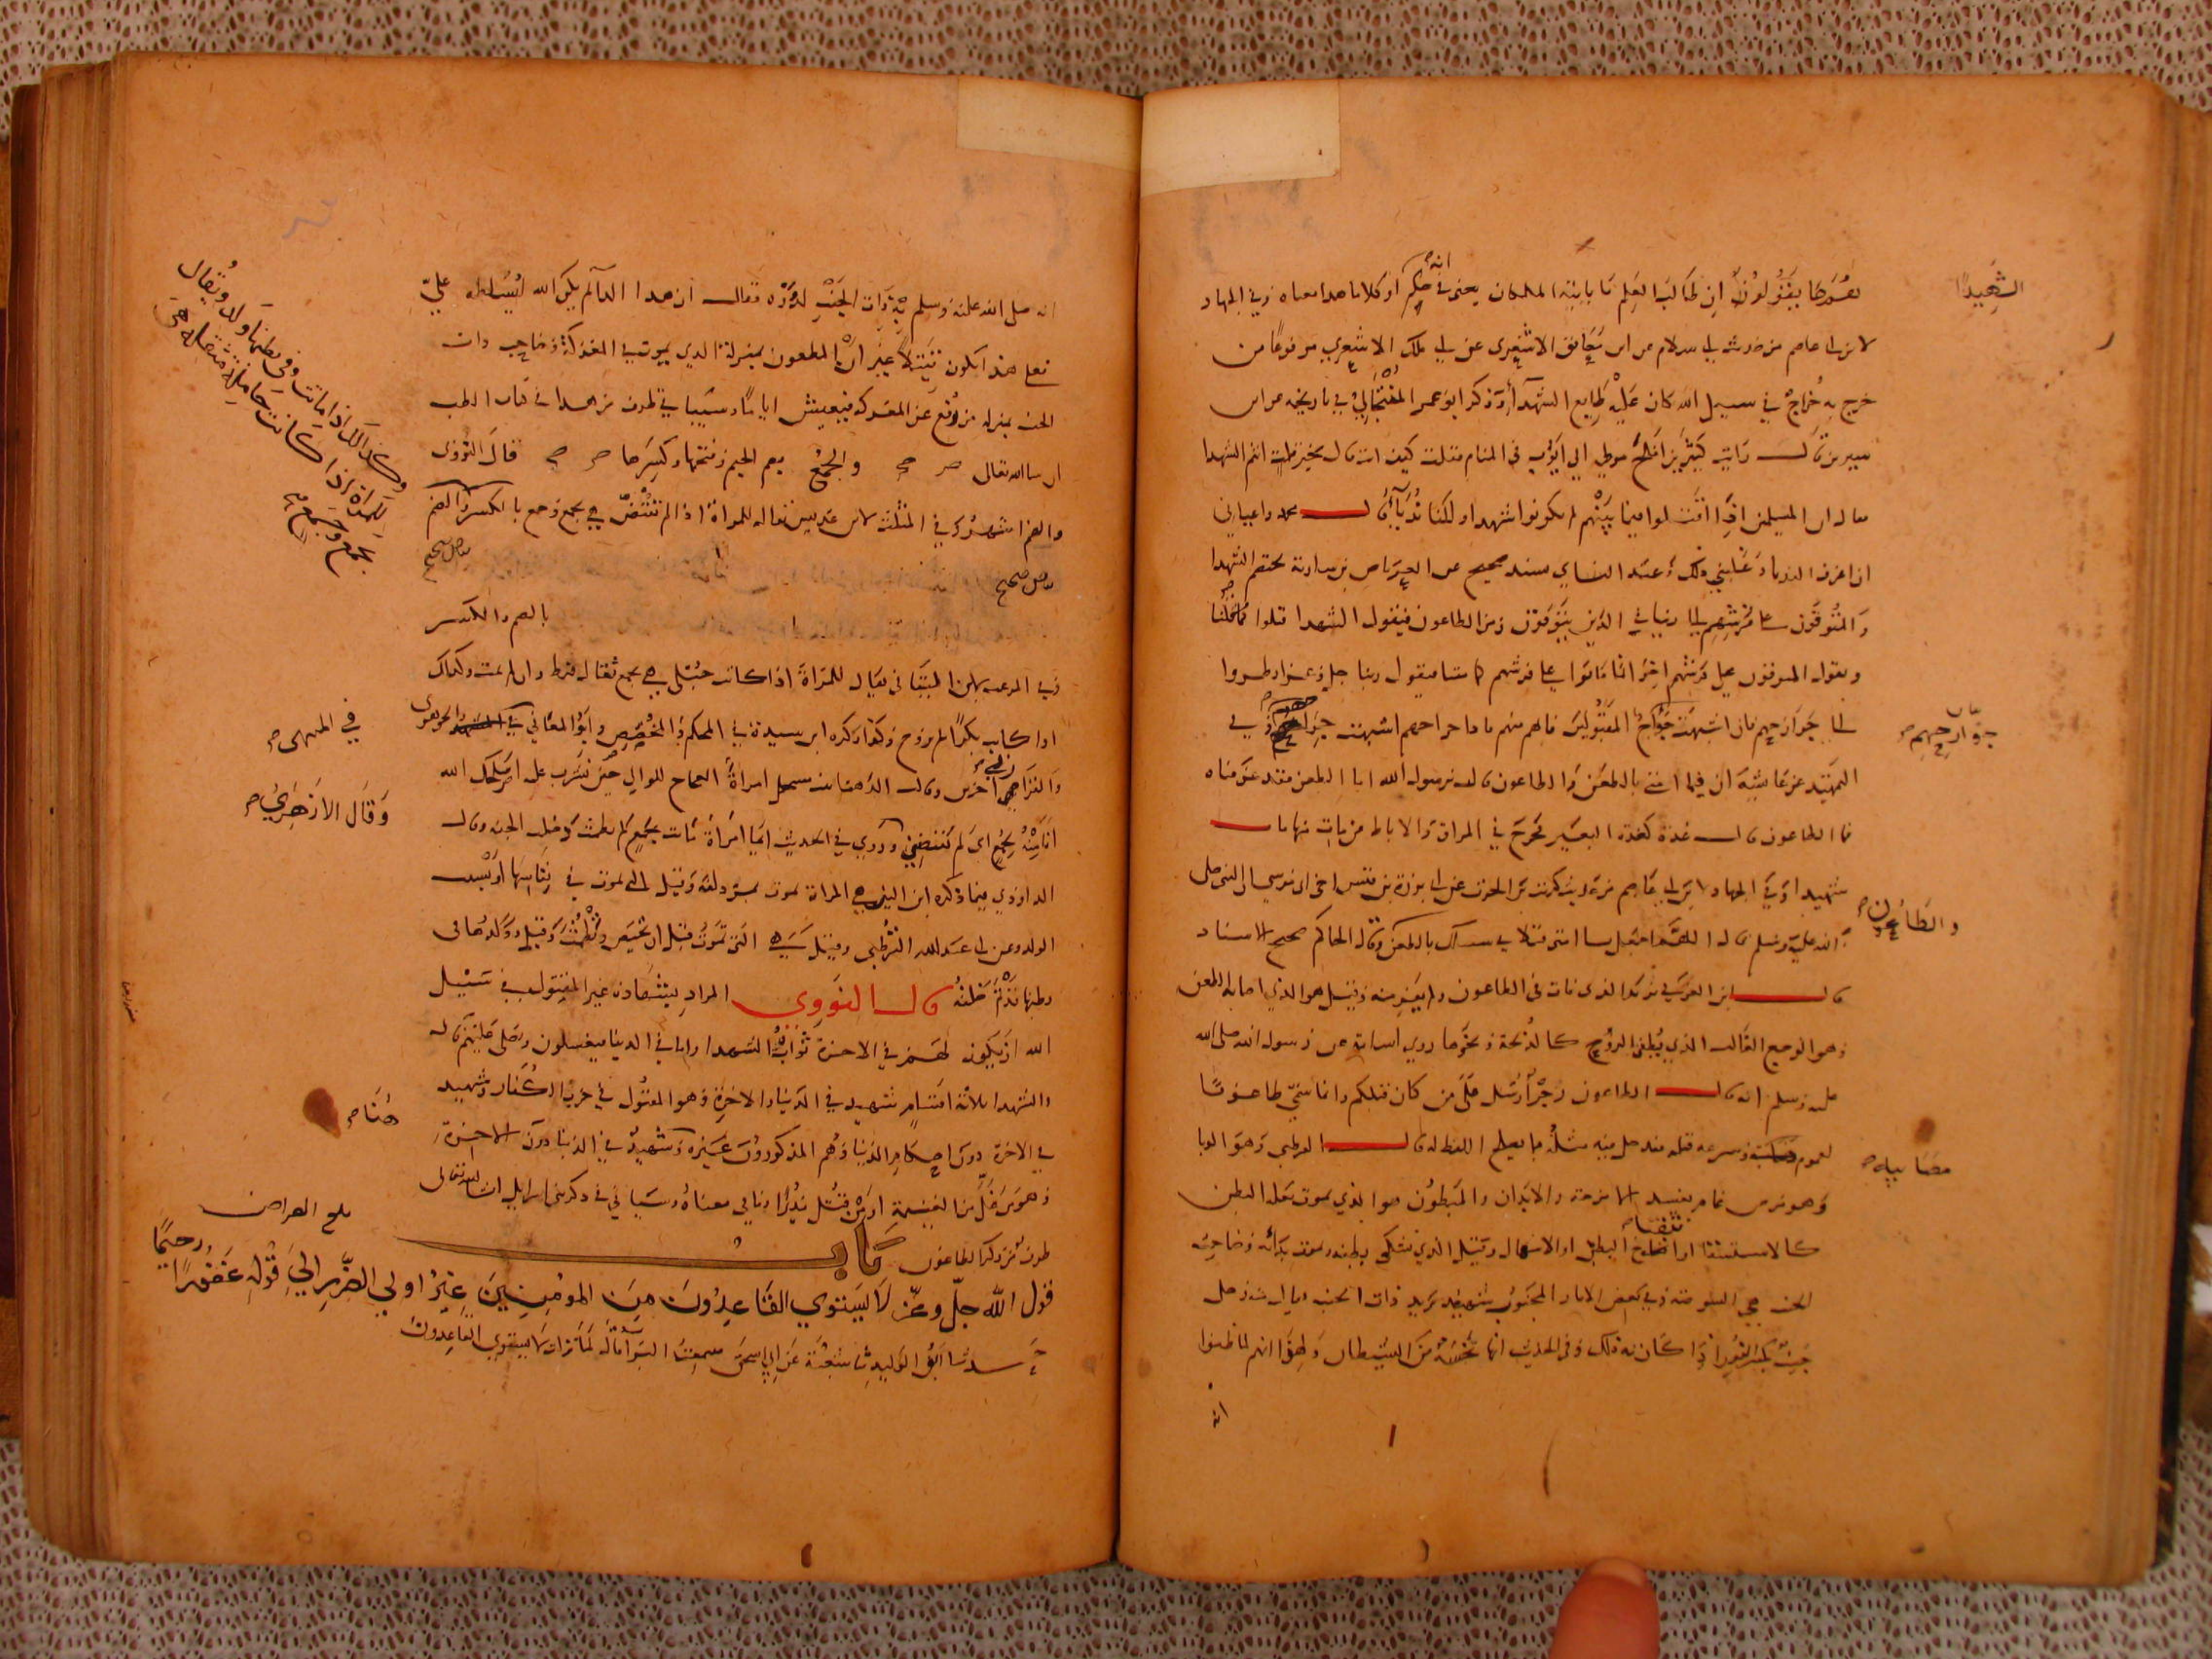 الشهيدا
بعضها يقولون ان طالب العلم يعني انه في حكم او كلاما هذا معناه وفي الجهاد
لابن ابي عاصم من حديث ابي سلام عن ابن معانق الاشعري عن ابي ملك الاشعري مرفوعا من
خرج به خراج في سبيل الله كان عليه طابع الشهدآ وذكر ابو عمر المنتجالي في تاريخه عن ابن
سيرين قال رايت كثير بن افلح مولى ابي ايوب في المنام فقلت كيف انت قال بخير قلت انتم الشهدا
قال ان المسلمين اذا اقتتلوا فيما بينهم لم يكونوا شهدا ولكنا ندبآ قال محمد واعياني
ان اعرف الندبا وغلبني ذلك وعند النساي بسند صحيح عن العرباض بن سارية يختصم الشهدا
والمتوفون على فرشهم الى ربنا في الذين يتوفون زمن الطاعون فيقول الشهدا قتلوا كما قتلنا
ويقول المتوفون على فرشهم اخواننا ماتوا على فرشهم كما متنا فيقول ربنا جل وعز انظروا
الى جراحهم فان اشبهت جراح المقتولين فانهم منهم فاذا جراحهم اشبهت جراحهم وفي
جراحهم صح
التمهيد عن عائشة ان فنا امتي بالطعن والطاعون قالت يرسول الله اما الطعن فقد عرفناه
فما الطاعون قال غدة كغدة البعير تخرج في المراق والاباط من مات منها مات
شهيدا وفي الجهاد لابن ابي عاصم من حديث كريب بن الحرث عن ابي بردة بن قيس اخي ابي موسى ان النبي صلى
الله عليه وسلم قال اللهم اجعل فنا امتي قتلا في سبيلك بالطعن وقال الحاكم صحيح الاسناد
والطاعون صح
قال ابن العربي في الذي مات في الطاعون ولم يفر منه وقيل هو الذي اصابه الطعن
وهو الوجع الغالب الذي يطفئ الروح كالذبحة ونحوها روى اسامة عن رسول الله صلى الله
عليه وسلم انه قال الطاعون رجز ارسل على من كان قبلكم وانما سمي طاعونا
لعموم مصابه وسرعة قتله فيدخل فيه مثله مما يصلح اللفظ له قال القرطبي وهو الوبا
مصابه صح
وهو مرض عام يفسد الامزجة والابدان والمبطون هو الذي يموت بعلة البطن
كالاستسقا او انتفاخ البطن او الاسهال وقيل الذي يشتكي بطنه ويموت بدائه وصاحب
الجنب هي الشوصة وفي بعض الاثار المجنوب شهيد يريد ذات الجنب يقال منه رجل
جنب بكسر النون اذا كان به ذلك وفي الحديث انها نخسة من الشيطان وفي انهم لما ظنوا
انه
انه صلى الله عليه وسلم به ذات الجنب لدوه فقال ان هذا الدآ لم يكن الله ليسلطه علي
فعلى هذا يكون قتيلا غير ان المطعون بمنزلة الذي يموت في المعركة وصاحب ذات
الجنب بمنزلة من رفع عن المعركة فيعيش اياما وسياتي طرف من هذا في كتاب الطب
ان شا الله تعالى والجمع بضم الجيم وفتحها وكسرها قال النووي
والضم اشهر وفي المثلث لابن عديس يقال للمراة اذا لم تفتض هي بجمع وجمع بالكسر والضم
وكذلك اذا ماتت وفي بطنها ولد ويقال
للمراة اذا كانت حاملا مثقلة هي
بجمع وجمع صح
بياض صحيح
بياض صحيح
بالضم والكسر
وفي الموعب لابن التياني يقال للمراة اذا كانت حبلى هي بجمع ثقال فقط وان لم تمت وكذلك
اذا كانت بكرا لم تزوج وكذا ذكره ابن سيدة في المحكم والمخصص وابو المعالي في المنتهى والجوهري
في المنتهى صح
والقزاز في اخرين وقالت الدهنا بنت مسحل امراة العجاج للوالي حين نشزت عليه اصلحك الله
وقال الازهري صح
اني منه بجمع اي لم يفتضني وروي في الحديث ايما امراة ماتت بجمع لم تطمث دخلت الجنة وقال
الداودي فيما ذكره ابن التين هي المراة تموت بمزدلفة وقيل التي تموت في نفاسها وبسبب
الولد وعن ابي عبد الله القرطبي وقيل هي التي تموت قبل ان تحيض وتطمث وقيل وولدها في
بطنها قد تم خلقه قال النووي المراد بشهادة غير المقتول في سبيل
الله ان يكون لهم في الاخرة ثواب الشهدا واما في الدنيا فيغسلون ويصلى عليهم قال
والشهدا ثلاثة اقسام شهيد في الدنيا والاخرة وهو المقتول في حرب الكفار وشهيد
في الاخرة دون احكام الدنيا وهم المذكورون هنا وغيره وشهيد في الدنيا دون الاخرة
هنا صح
وهو من غل من الغنيمة او من قتل مدبرا او ما في معناه وسياتي في ذكر بني اسرايل ان شا الله تعالى
طرف من ذكر الطاعون باب
بلغ العراض
قول الله جل وعز لا يستوي القاعدون من المومنين غير اولي الضرر الى قوله غفورا رحيما
حدثنا ابو الوليد ثنا شعبة عن ابي اسحق سمعت البرآ قال لما نزلت لا يستوي القاعدون